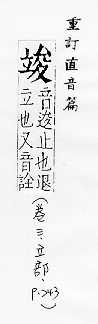 重訂直音篇
竣
音逡止也退
立也又音詮
(卷三、立部、P.243)